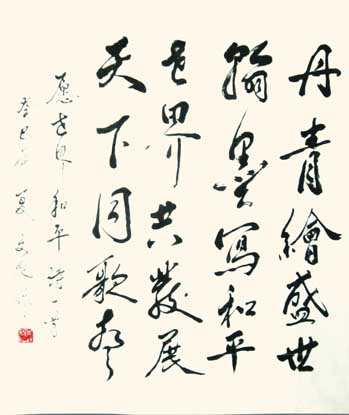 丹青繪盛世
翰墨寫和平
世界共發展
天下同歌聲
愿世界和平詩一首
癸巳 夏